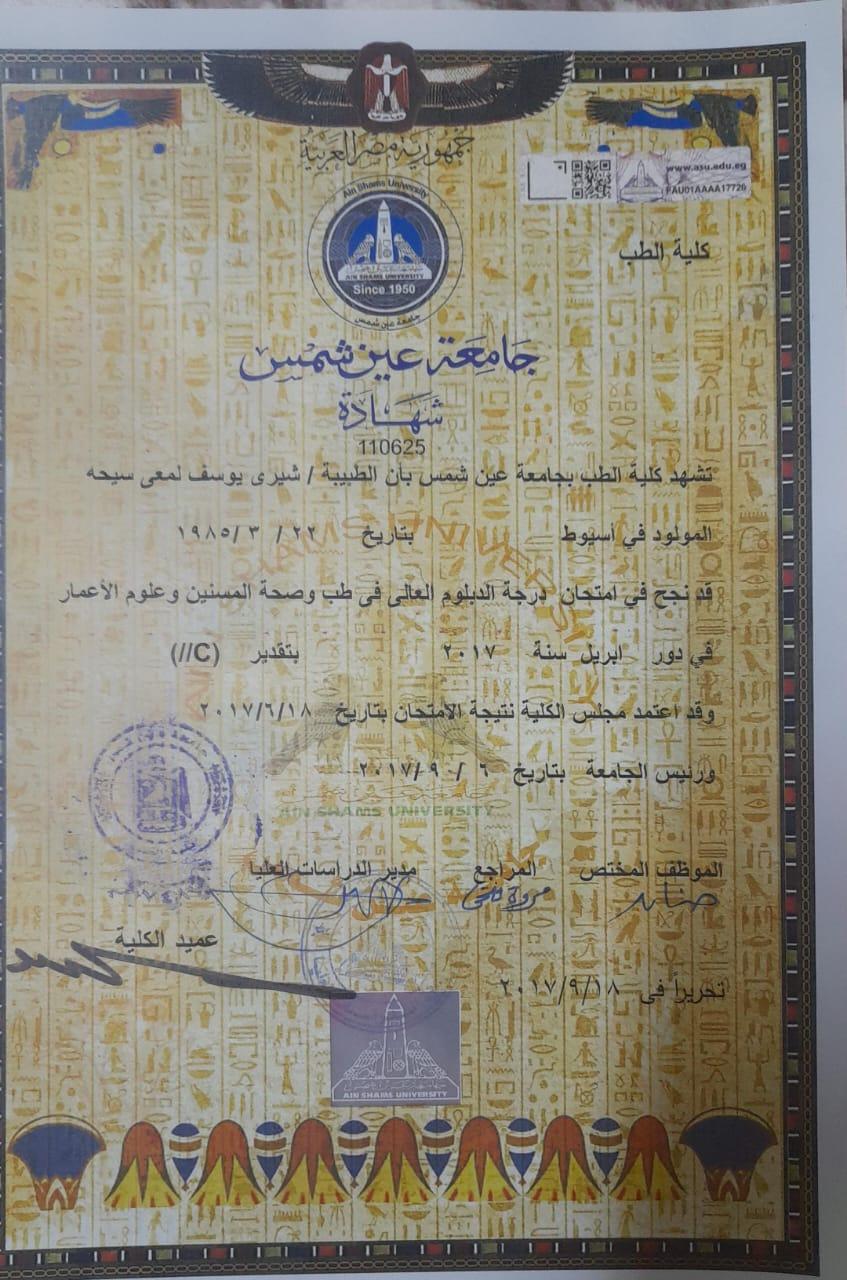 جمهورية مصر العربية
www.asu.edu.eg
FAU01AAAA17726
Ain Shams University
AIN SHAMS UNIVERSITY
Since 1950
جامعة عين شمس
كلية الطب
جَامِعَة عين شمس
شَهَادَة
110625
تشهد كلية الطب بجامعة عين شمس بأن الطبيبة / شيرى يوسف لمعى سيحه
المولود في أسيوط بتاريخ ٢٢ / ٣ /١٩٨٥
قد نجح في امتحان درجة الدبلوم العالى فى طب وصحة المسنين وعلوم الأعمار
في دور ابريل سنة ٢٠١٧ بتقدير (C//)
وقد اعتمد مجلس الكلية نتيجة الامتحان بتاريخ ٢٠١٧/٦/١٨
ورئيس الجامعة بتاريخ ٦ / ٩ /٢٠١٧
AIN SHAMS UNIVERSITY
الموظف المختص المراجع مدير الدراسات العليا
عميد الكلية
تحريراً فى ٢٠١٧/٩/١٨
AIN SHAMS UNIVERSITY